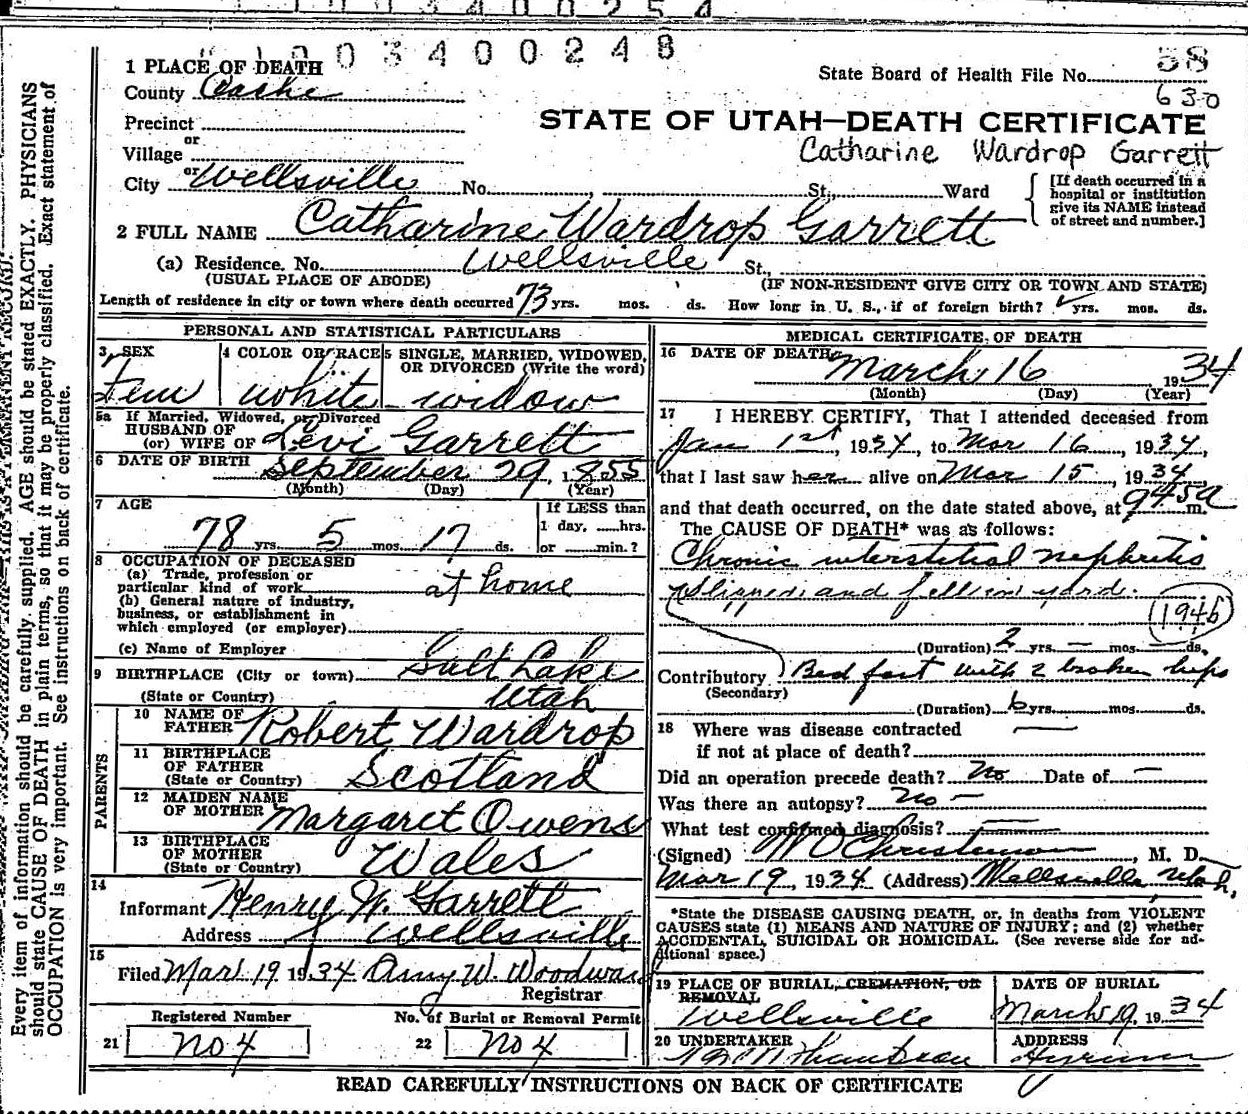 1003400254
1003400248
58
1 PLACE OF DEATH
State Board of Health File No.
County Cache
630
Precinct
STATE OF UTAH—DEATH CERTIFICATE
or
Village
Catharine Wardrop Garrett
or
City Wellsville No. , St. Ward
[If death occurred in a hospital or institution give its NAME instead of street and number.]
2 FULL NAME Catharine Wardrop Garrett
(a) Residence. No. Wellsville St.,
(USUAL PLACE OF ABODE) (IF NON-RESIDENT GIVE CITY OR TOWN AND STATE)
Length of residence in city or town where death occurred 73 yrs. mos. ds. How long in U. S., if of foreign birth? yrs. mos. ds.
PERSONAL AND STATISTICAL PARTICULARS
3 SEX
Fem
4 COLOR OR RACE
white
5 SINGLE, MARRIED, WIDOWED,
OR DIVORCED (Write the word)
widow
5a If Married, Widowed, or Divorced
HUSBAND OF
(or) WIFE OF Levi Garrett
6 DATE OF BIRTH September 29, 1855
(Month) (Day) (Year)
7 AGE
78 yrs. 5 mos. 17 ds.
If LESS than
1 day, hrs.
or min.?
8 OCCUPATION OF DECEASED
(a) Trade, profession or
particular kind of work at home
(b) General nature of industry,
business, or establishment in
which employed (or employer)
(c) Name of Employer
9 BIRTHPLACE (City or town) Salt Lake
(State or Country) Utah
PARENTS
10 NAME OF
FATHER Robert Wardrop
11 BIRTHPLACE
OF FATHER
(State or Country) Scotland
12 MAIDEN NAME
OF MOTHER Margaret Owens
13 BIRTHPLACE
OF MOTHER
(State or Country) Wales
14
Informant Henry W. Garrett
Address Wellsville
15
Filed Mar 19 1934 Amy W. Woodward
Registrar
Registered Number
21 No 4
No. of Burial or Removal Permit
22 No 4
MEDICAL CERTIFICATE OF DEATH
16 DATE OF DEATH March 16 1934
(Month) (Day) (Year)
17 I HEREBY CERTIFY, That I attended deceased from
Jan 1st, 1934, to Mar 16, 1934,
that I last saw her alive on Mar 15, 1934
and that death occurred, on the date stated above, at 945a m.
The CAUSE OF DEATH* was as follows:
Chronic interstitial nephritis
slipped and fell in yard.
194b
(Duration) 2 yrs. — mos. — ds.
Contributory Bed fast with 2 broken hips
(Secondary)
(Duration) 6 yrs. mos. ds.
18 Where was disease contracted
if not at place of death? —
Did an operation precede death? No Date of —
Was there an autopsy? no —
What test confirmed diagnosis? —
(Signed) W O Christensen, M. D.
Mar 19, 1934 (Address) Wellsville, Utah.
*State the DISEASE CAUSING DEATH, or, in deaths from VIOLENT
CAUSES state (1) MEANS AND NATURE OF INJURY; and (2) whether
ACCIDENTAL, SUICIDAL OR HOMICIDAL. (See reverse side for ad-
ditional space.)
19 PLACE OF BURIAL, CREMATION, OR
REMOVAL
Wellsville
DATE OF BURIAL
March 19, 1934
20 UNDERTAKER
ADDRESS
Hyrum
READ CAREFULLY INSTRUCTIONS ON BACK OF CERTIFICATE
Every item of information should be carefully supplied. AGE should be stated EXACTLY. PHYSICIANS
should state CAUSE OF DEATH in plain terms, so that it may be properly classified. Exact statement of
OCCUPATION is very important. See instructions on back of certificate.